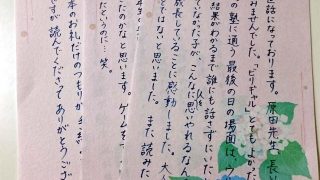 世話になっております。原田先生、長い
みませんでした。「ビリギャル」とてもよかった
の塾に通う最後の日の場面は、
結果がわかるまで誰にも話さずにいた
なった子が、こんなに人を思いやれるなん
成長していることに感動しました。大人
とではないと思いました。また読みた
ったのかなと思います。ゲームを
だというのに…笑。
本のお礼だけのつもりが
ですが読んでくださって ありがとうござ